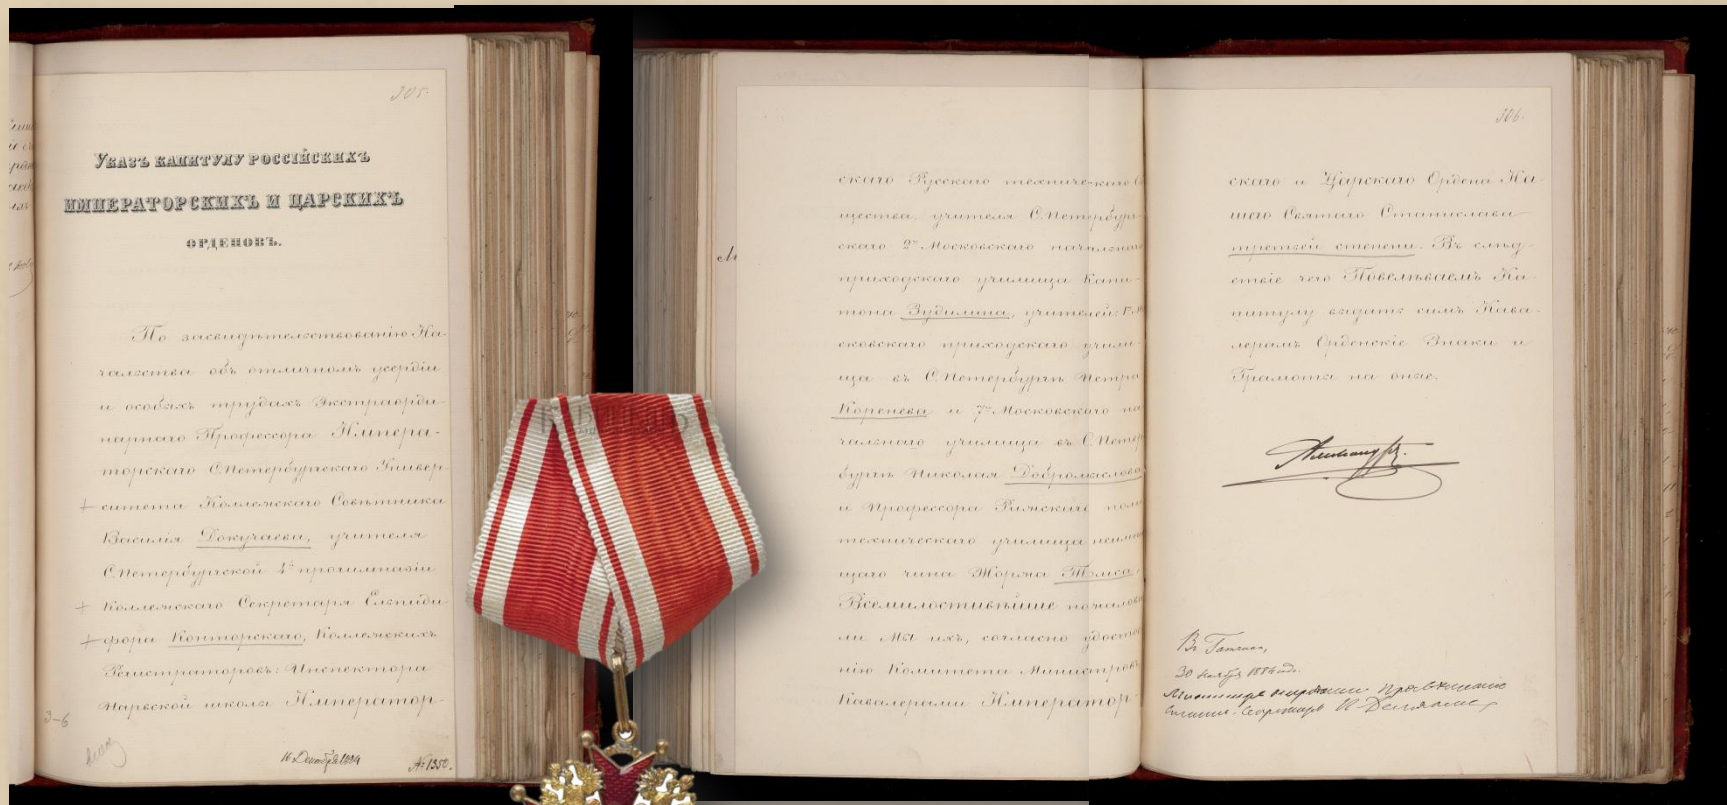 305.
Указъ капитулу россійскихъ
императорскихъ и царскихъ
орденовъ.
По засвидѣтельствованію На-
чальства объ отличномъ усердіи
и особыхъ трудахъ Экстраорди-
нарнаго Профессора Импера-
торскаго С.Петербургскаго Универ-
ситета Коллежскаго Совѣтника
Василія Докучаева, учителя
С.Петербургской 4й прогимназіи
Коллежскаго Секретаря Елпиди-
фора Конторскаго, Коллежскихъ
Регистраторовъ: Инспектора
Нарвской школы Император-
3-6
16 Декабря 1884
№ 1350.
скаго Русскаго техническаго О
щества, учителя С.Петербург
скаго 2го Московскаго начальнаго
приходскаго училища Капи-
тона Зудилина, учителей: 1го М
сковскаго приходскаго учили-
ща въ С.Петербургѣ Петра
Коренева и 7го Московскаго на
чальнаго училища въ С.Петер
бургѣ Николая Добромыслова
и Профессора Рижскаго поли
техническаго училища неимѣ
щаго чина Жоржа Томса,
Всемилостивѣйше пожалова
ли Мы ихъ, согласно удосто
нію Комитета Министровъ
Кавалерами Император-
306.
скаго и Царскаго Ордена На-
шего Святаго Станислава
третьей степени. Въ слѣд-
ствіе чего Повелѣваемъ Ка-
питулу выдать симъ Кава-
лерамъ Орденскіе Знаки и
Грамоты на оные.
Александръ
Въ Гатчинѣ,
30 ноября 1884 года.
Министръ народнаго Просвѣщенія
Статсъ-Секретарь И Деляновъ